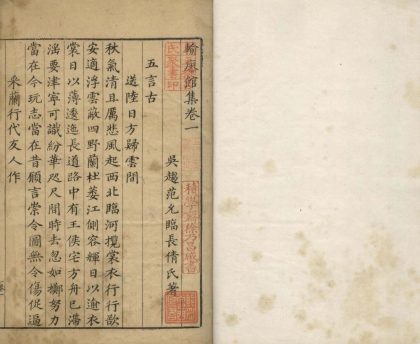 輸廖館集卷一
吳趨范允臨長倩氏著
五言古
送陸日方歸雲間
秋氣清且厲悲風起西北臨河攬裳衣行行欲
安適浮雲蔽四野蘭杜萎江側容輝日以逾衣
裳日以薄逶迤長道路中有王侯宅方舟已滿
瑤要津寧可識紛華咫尺間時去忽如擲努力
當在今玩志當在昔願言崇令圖無令傷促逼
采蘭行代友人作